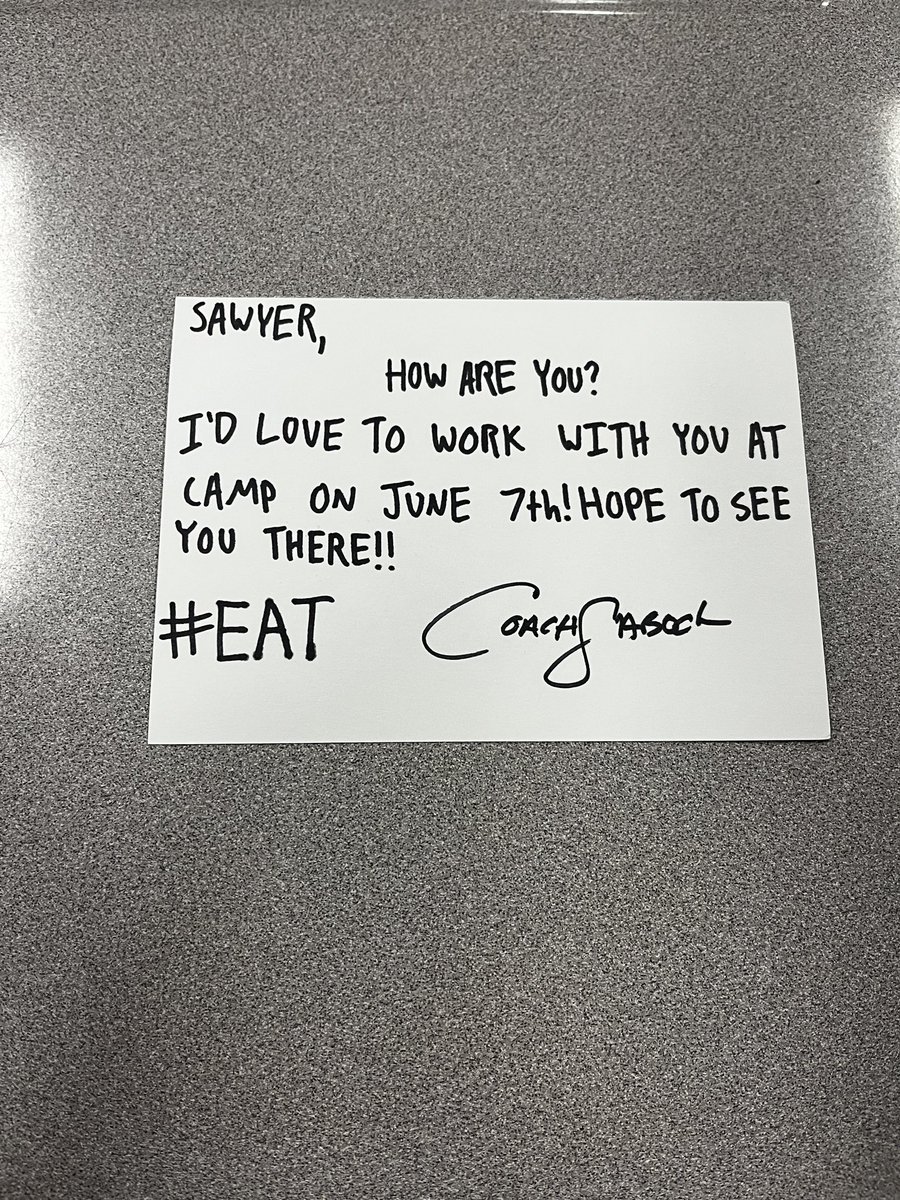 SAWYER,
HOW ARE YOU?
I'D LOVE TO WORK WITH YOU AT
CAMP ON JUNE 7th! HOPE TO SEE
YOU THERE!!
#EAT COACH